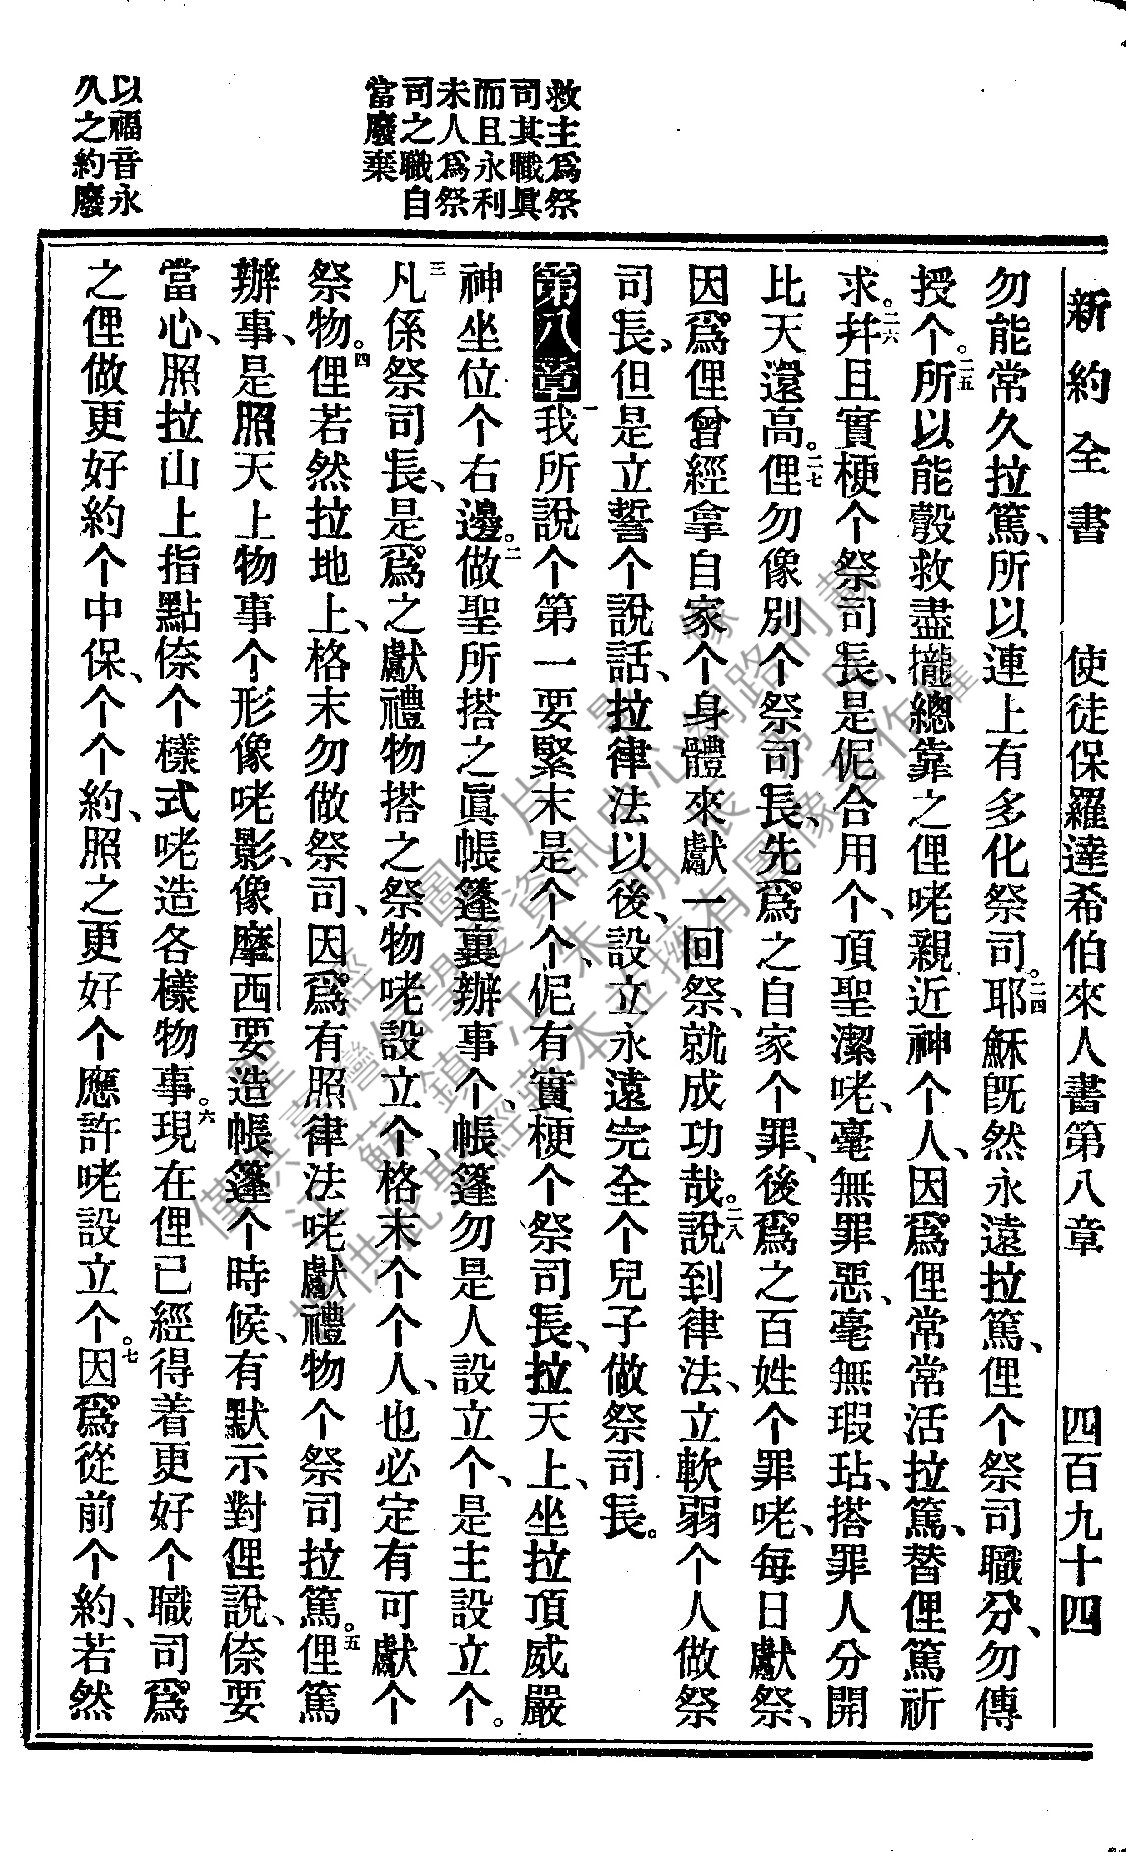 新約全書　使徒保羅達希伯來人書第八章　四百九十四
勿能常久拉篤、所以連上有多化祭司。二四耶穌旣然永遠拉篤、俚个祭司職分、勿傳
授个。二五所以能彀救盡攏總靠之俚咾親近神个人、因爲俚常常活拉篤、替俚篤祈
求。二六幷且實梗个祭司長、是伲合用个、頂聖潔咾、毫無罪惡、毫無瑕玷、搭罪人分開
比天還高。二七俚勿像別个祭司長、先爲之自家个罪、後爲之百姓个罪咾、每日獻祭、
因爲俚曾經拿自家个身體來獻一回祭、就成功哉。二八說到律法、立軟弱个人做祭
司長、但是立誓个說話、拉律法以後、設立永遠完全个兒子做祭司長。
第八章一我所說个第一要緊末是个个、伲有實梗个祭司長、拉天上、坐拉頂威嚴
神坐位个右邊。二做聖所搭之眞帳篷裏辦事个、帳篷勿是人設立个、是主設立个。
三凡係祭司長、是爲之獻禮物搭之祭物咾設立个、格末个个人、也必定有可獻个
祭物。四俚若然拉地上、格末勿做祭司、因爲有照律法咾獻禮物个祭司拉篤。五俚篤
辦事、是照天上物事个形像咾影、像摩西要造帳篷个時候、有默示對俚說、倷要
當心、照拉山上指點倷个樣式咾造各樣物事。六現在俚已經得着更好个職司、爲
之俚做更好約个中保、个个約、照之更好个應許咾設立个。七因爲從前个約、若然
救主爲祭
司其職眞
而且永利
未人爲祭
司之職自
當廢棄
以福音永
久之約廢
僅供臺灣信望愛資訊中心網路刊載